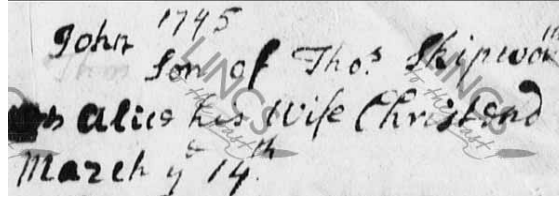 1745
John Son of Thos. Skipwo
Alice his Wife Christend
March ye 14th.